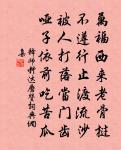 萬福西來老骨撾
不遵行止渡流沙
被人打落當門齒
啞子依前吃苦瓜
釋師範達磨贊詩詞典網
集